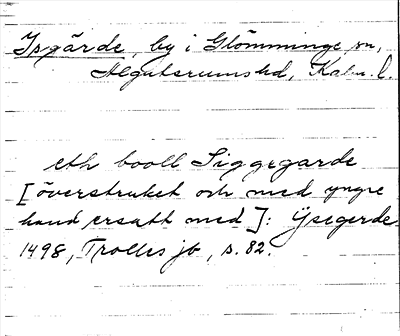 Isgärde, by i Glömminge sn,
Algutsrums hd, Kalm. l.
eth booll Siggegarde
[överstruket och med yngre
hand ersatt med]: Ysegerde
1498, Trolles jb, s. 82.